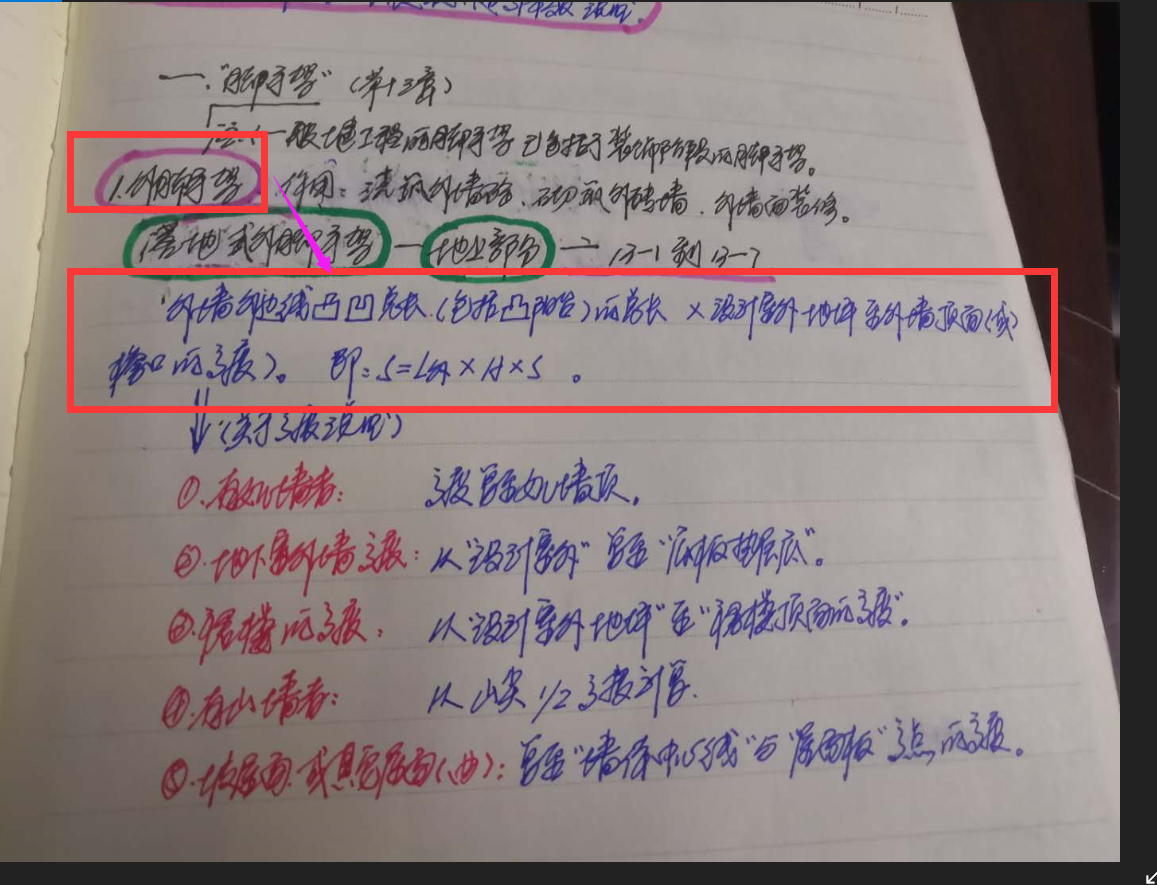 一."脚手架"（第十三章）
注：一般土建工程的脚手架已包括了装饰阶段的脚手架。
1.外脚手架 作用：浇筑外墙砼、砌筑外砖墙、外墙面装修。
落地式外脚手架 — 地上部分 → 13-1到13-7
外墙外边线凸凹总长（包括凸阳台）的总长 × 设计室外地坪至外墙顶面（或
檐口的高度）。 即：S=L外×H×S 。
（关于高度说明）
①.有女儿墙者： 高度算至女儿墙顶。
②.地下室外墙高度：从"设计室外"算至"底板垫层底"。
③.裙楼的高度： 从"设计室外地坪"至"裙楼顶面的高度"。
④.有山墙者： 从山尖1/2高度计算.
⑤.坡屋面.或其它屋面（曲）：算至"墙体中心线"与"屋面板"交点的高度。